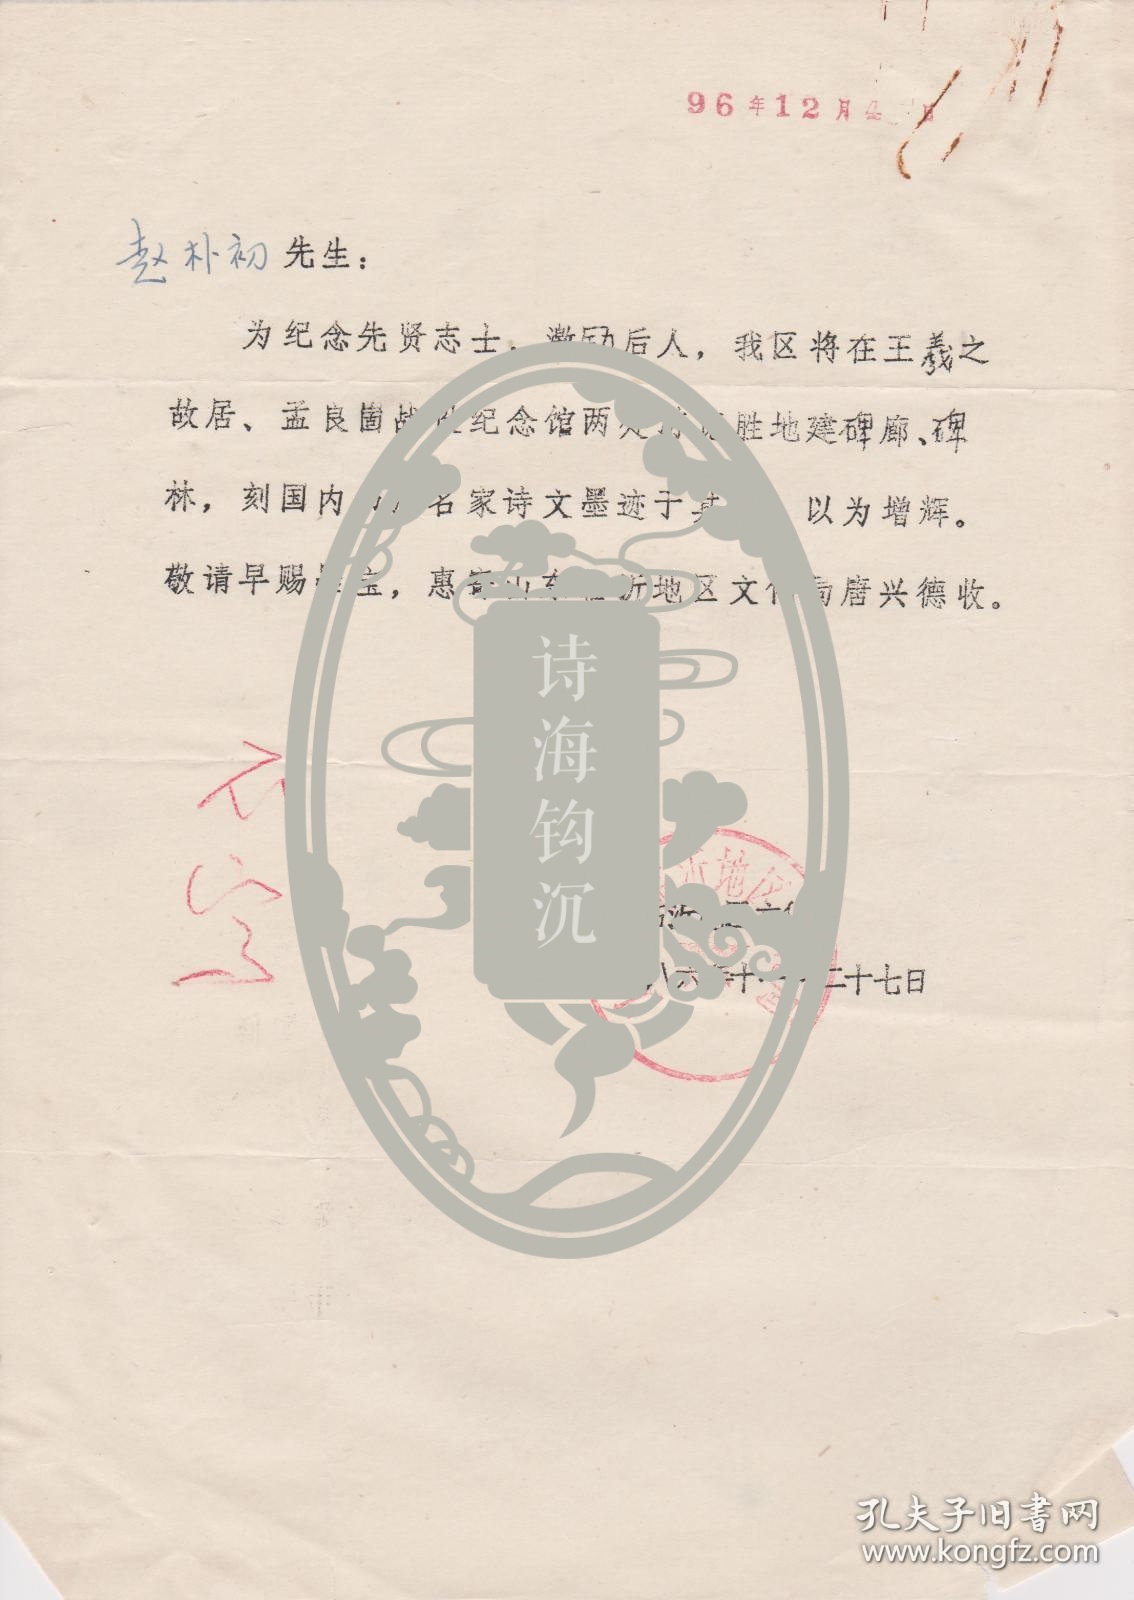 96年12月4日
赵朴初先生：
为纪念先贤志士，激励后人，我区将在王羲之
故居、孟良崮战 纪念馆两处 胜地建碑廊、碑
林，刻国内 名家诗文墨迹于其 以为增辉。
敬请早赐 宝，惠寄山东临沂地区文化局唐兴德收。
诗海钩沉
沂地区
八六年十一月二十七日
孔夫子旧书网
www.kongfz.com